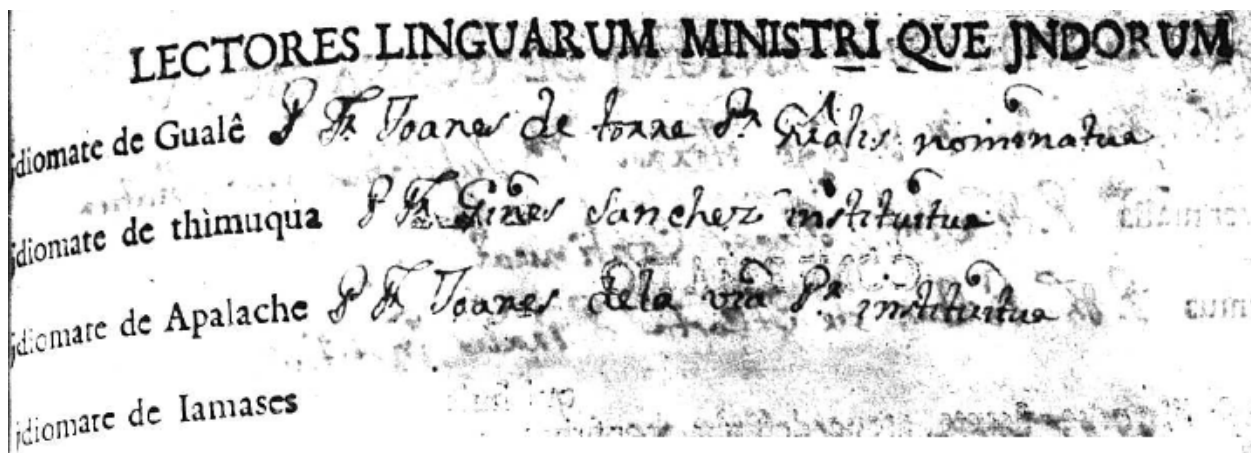 LECTORES LINGUARUM MINISTRI QUE JNDORUM
jdiomate de Gualê P Fr Joanes de torre Pr nominatur
jdiomate de thìmuqua P Fr Gines Sanchez instituitur
jdiomate de Apalache P Fr Joanes dela via Pr instituitur
jdiomate de Iamases